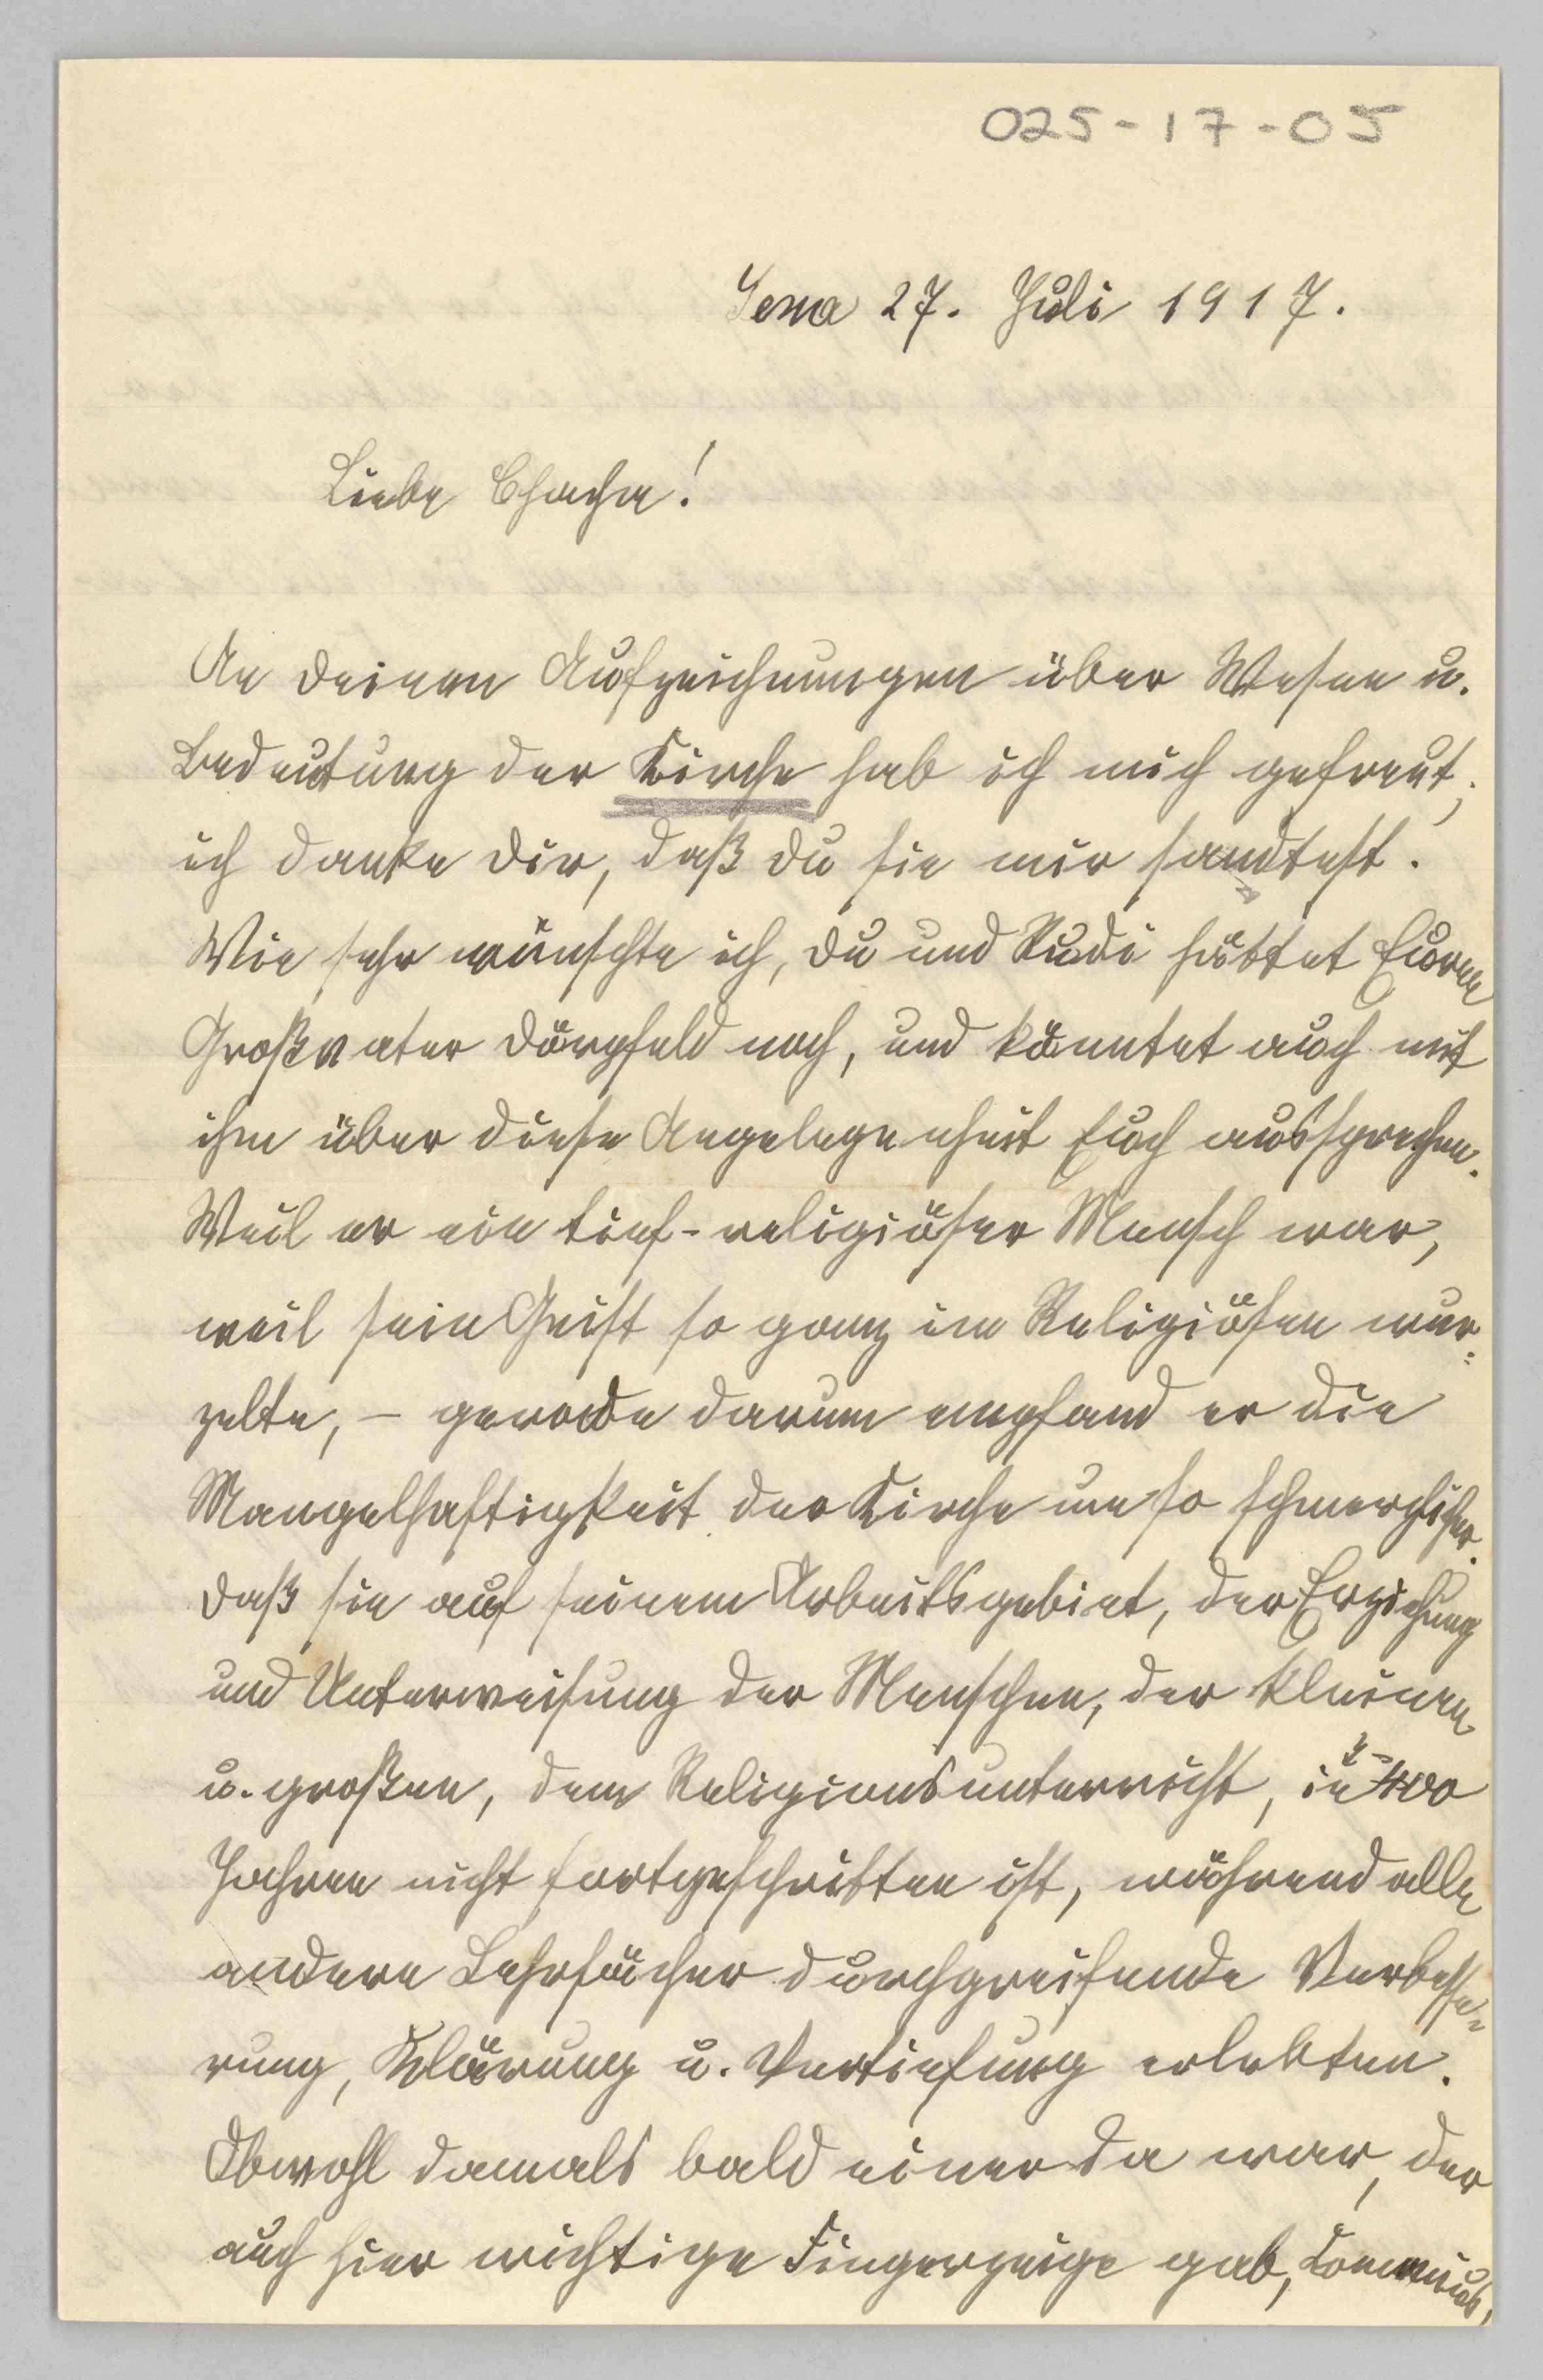 025-17-05
Jena 27. Juli 1917.
Liebe Chacha!
An Deinen Aufzeichnungen über Wesen u.
Bedeutung der Kirche hab ich mich gefreut;
ich danke Dir, daß Du sie mir sandtest.
Wie sehr wünschte ich, Du und Rudi hättet Euren
Großvater Dörpfeld noch, und könntet auch mit
ihm über diese Angelegenheit Euch aussprechen.
Weil er ein tief-religiöser Mensch war,
weil sein Geist so ganz im Religiösen wur-
zelte, – gerade darum empfand er die
Mangelhaftigkeit der Kirche um so schmerzlicher.
Daß sie auf seinem Arbeitsgebiet, der Erziehung
und Unterweisung der Menschen, der kleinen
u. großen, dem Religionsunterricht, in 400
Jahren nicht fortgeschritten ist, während alle
andern Lehrfächer durchgreifende Verbesse-
rung, Klärung u. Vertiefung erlebten.
Obwohl damals bald einer da war, der
auch hier wichtige Fingerzeige gab, Comenius,